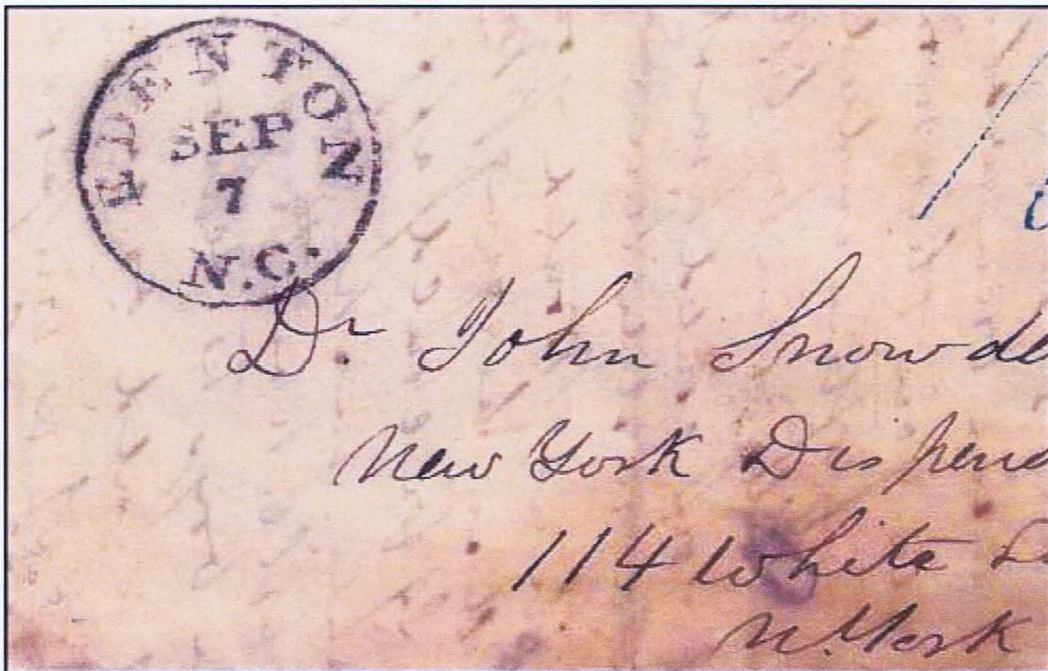 EDENTON
SEP
7
N.C.
Dr. John Snowde
New York Dispens
114 White
N. York